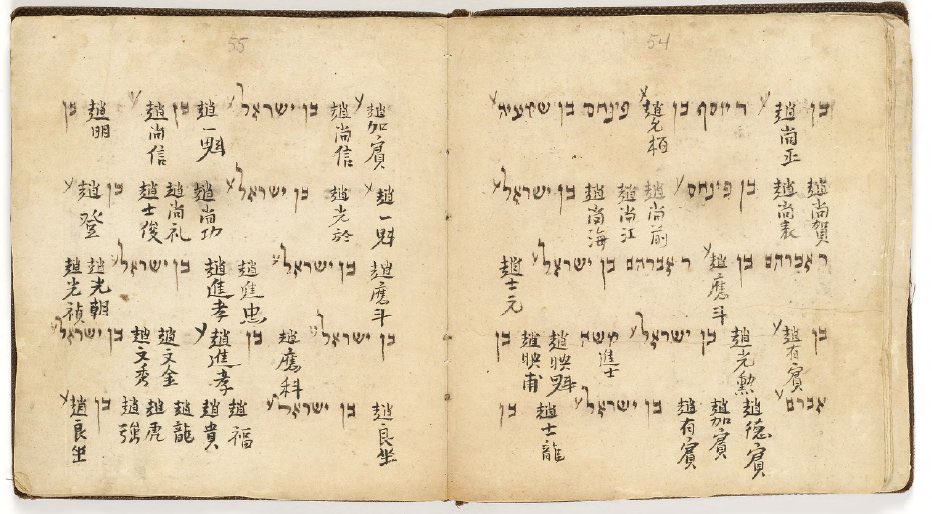 54
בן 趙尚正 ר יוסף בן 趙光栢 פינחס בן שמעיה
趙尚賀 趙尚表 בן פינחס 趙尚前 趙尚江 趙尚海 בן ישראל
ר אברהם בן 趙應斗 ר אברהם בן ישראל 趙士元
בן 趙有賓 趙光勲 בן ישראל משה 進士 趙映魁 趙映甫 בן
אברם 趙德賓 趙加賓 趙有賓 בן ישראל 趙士龍 בן
55
趙加賓 趙尚信 בן ישראל 趙一魁 בן 趙尚信 趙明 בן
趙一魁 趙光於 בן ישראל 趙尚功 趙尚礼 趙士俊 בן 趙登
趙應斗 בן ישראל 趙進忠 趙進孝 בן ישראל 趙光朝 趙光禎
בן ישראל 趙應科 בן 趙進孝 趙文金 趙文秀 בן ישראל
趙良坐 בן ישראל 趙福 趙貴 趙龍 趙虎 趙強 בן 趙良坐